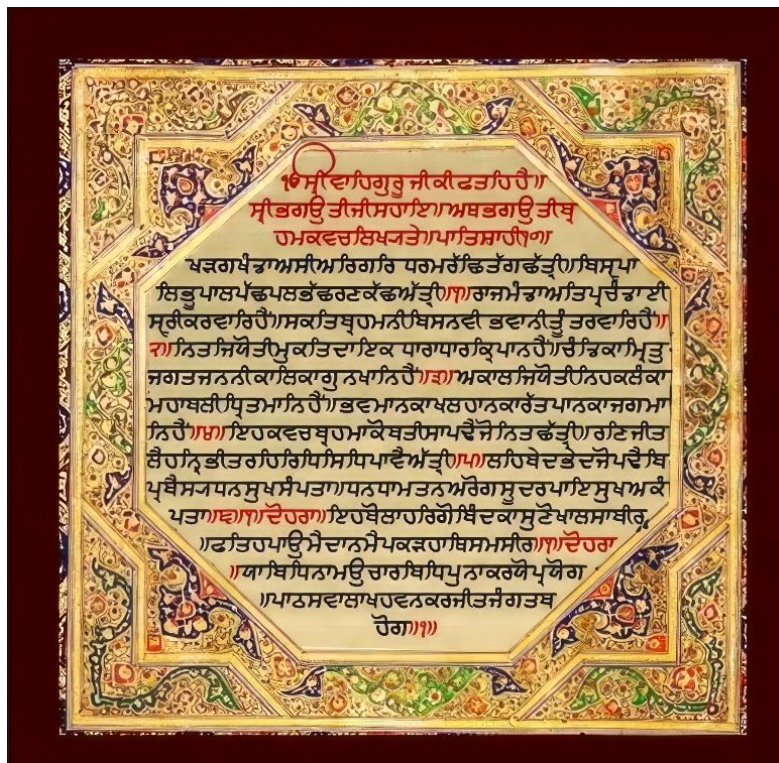 ੴ ਸ੍ਰੀ ਵਾਹਿਗੁਰੂ ਜੀ ਕੀ ਫਤਹਿ ਹੈ॥
ਸ੍ਰੀ ਭਗਉਤੀ ਜੀ ਸਹਾਇ॥ ਅਥ ਭਗਉਤੀ ਬ੍ਰ
ਹਮ ਕਵਚ ਲਿਖ੍ਯਤੇ॥ ਪਾਤਿਸ਼ਾਹੀ ੧੦॥
ਖੜਗ ਖੰਡਾ ਅਸੀ ਅਰਿ ਗਰਿ ਧਰਮ ਰੱਛਿ ਤੱਗ ਛੱਤ੍ਰੀ॥ ਬਿਸ੍ਵਪਾ
ਲਿ ਭੂਪਾਲ ਪੱਛ ਪਲ ਭੱਛ ਰਣ ਕੱਛ ਅੱਤ੍ਰੀ॥੧॥ ਰਾਜ ਮੰਡਾ ਅਤਿ ਪ੍ਰਚੰਡਾ ਈ
ਸ੍ਵਰੀ ਕਰਵਾਰਿ ਹੈਂ॥ ਸਕਤਿ ਬ੍ਰਹਮਨੀ ਬਿਸਨਵੀ ਭਵਾਨੀ ਤੂੰ ਤਰਵਾਰਿ ਹੈਂ॥
੨॥ ਨਿਤ ਜਿਯੋਤੀ ਮੁਕਤਿ ਦਾਇਕ ਧਾਰਾਧਾਰ ਕ੍ਰਿਪਾਨ ਹੈਂ॥ ਚੰਡਿਕਾ ਮ੍ਰਿਤੁ
ਜਗਤ ਜਨਨੀ ਕਾਲਿਕਾ ਗੁਨਖਾਨਿ ਹੈਂ॥੩॥ ਅਕਾਲ ਜਿਯੋਤੀ ਨਿਹਕਲੰਕਾ
ਮਹਾਬਲੀ ਧ੍ਰਿਤਮਾਨਿ ਹੈਂ॥ ਭਵਮਾਨਕਾ ਖਲਹਾਨਕਾ ਰੱਤਪਾਨਕਾ ਜਗਮਾ
ਨਿ ਹੈਂ॥੪॥ ਇਹ ਕਵਚ ਬ੍ਰਹਮਾ ਕੋ ਥਤੀਸਾ ਪਢੈਂ ਜੋ ਨਿਤ ਛੱਤ੍ਰੀ॥ ਰਣਿ ਜੀਤ
ਲੈਹ ਨ੍ਰਿਭੀਤ ਰਹਿ ਰਿਧਿ ਸਿਧਿ ਪਾਵੈ ਅੱਤ੍ਰੀ॥੫॥ ਲਹਿ ਬੇਦ ਭੇਦ ਜੋ ਪਢੈ ਬਿ
ਪ੍ਰ ਬੈਸ੍ਯ ਧਨ ਸੁਖ ਸੰਪਤਾ॥ ਧਨ ਧਾਮ ਤਨ ਅਰੋਗ ਸੂਦਰ ਪਾਇ ਸੁਖ ਅਕੰ
ਪਤਾ॥੬॥੧॥ ਦੋਹਰਾ॥ ਇਹ ਬੋਲਾ ਹਰਿਗੋਬਿੰਦ ਕਾ ਸੁਣੋ ਖਾਲਸਾ ਬੀਰ
॥ਫਤਿਹ ਪਾਉ ਮੈਦਾਨ ਮੈ ਪਕੜ ਹਾਥਿ ਸਮਸੀਰ॥੧॥ ਦੋਹਰਾ
॥ਯਾ ਬਿਧਿ ਨਾਮ ਉਚਾਰ ਬਿਧਿ ਪੁਨਾ ਕਰਯੋ ਪ੍ਰਯੋਗ
॥ਪਾਠ ਸਵਾਲਾਖ ਹਵਨ ਕਰ ਜੀਤ ਜੰਗ ਤਬ
ਹੋਗ॥੧॥